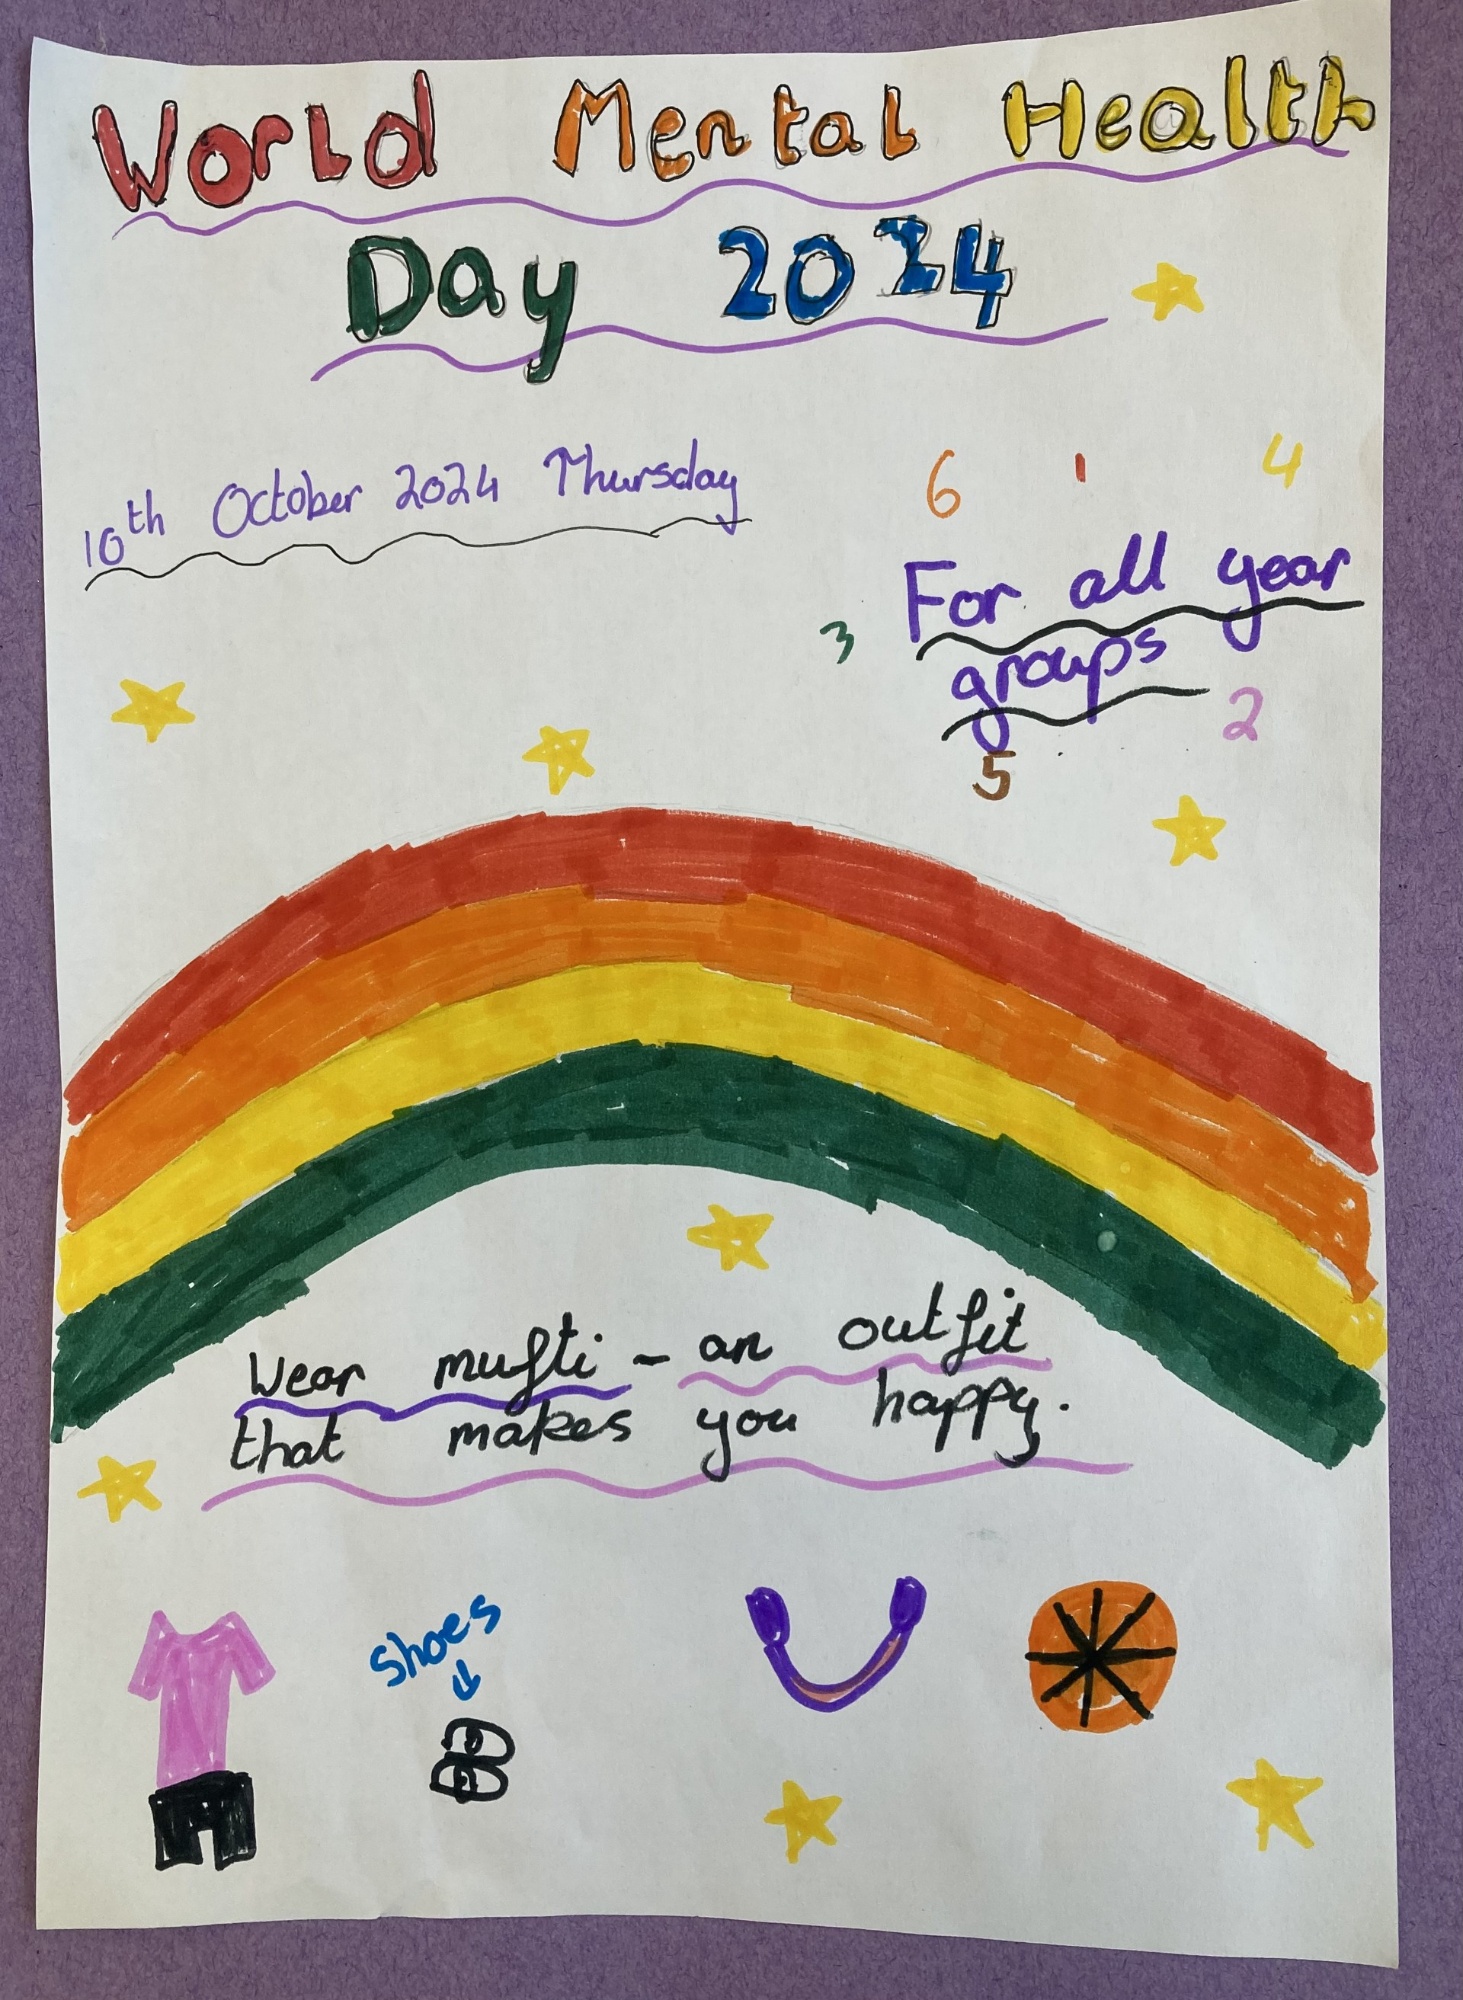 World Mental Health
Day 2024
10th October 2024 Thursday
6 1 4
For all year
3
groups
2
5
Wear mufti - an outfit
that makes you happy.
Shoes